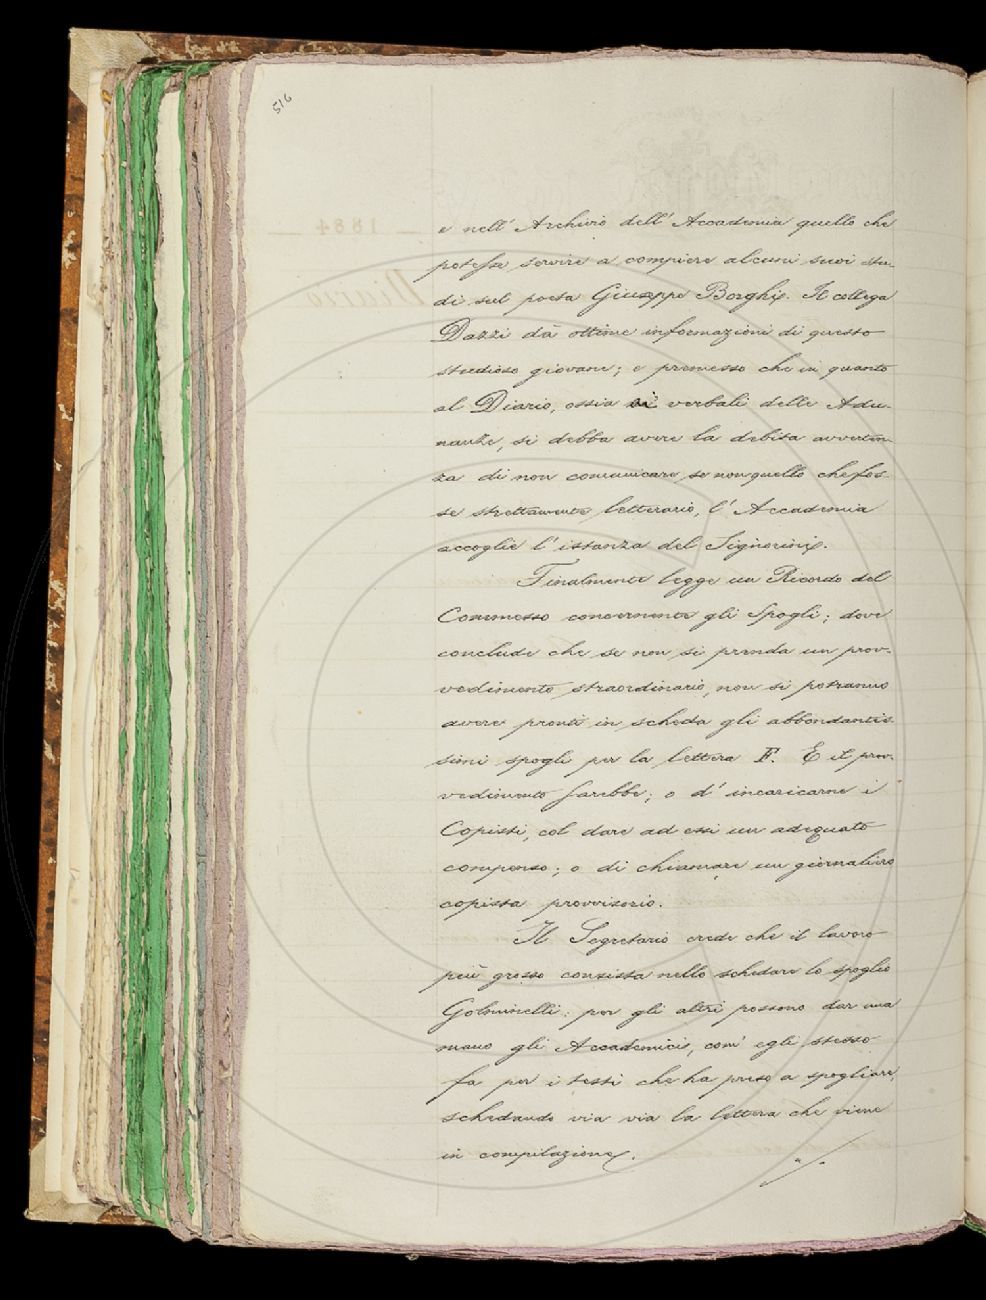 516
e nell' Archivio dell' Accademia quello che
potesse servire a compiere alcuni suoi stu-
di sul poeta Giuseppe Borghi. Il collega
Dazzi dà ottime informazioni di questo
studioso giovane; e premesso che in quanto
al Diario, ossia ai verbali delle Adu-
nanze, si debba avere la debita avverten-
za di non comunicare se non quello che fos-
se strettamente letterario, l' Accademia
accoglie l' istanza del Signorini.
Finalmente legge un Ricordo del
Commesso concernente gli Spogli; dove
conclude che se non si prenda un prov-
vedimento straordinario, non si potranno
avere pronti in scheda gli abbondantis-
simi spogli per la lettera F. E il prov-
vedimento sarebbe; o d' incaricarne i
Copisti, col dare ad essi un adeguato
compenso; o di chiamare un giornaliero
copista provvisorio.
Il Segretario crede che il lavoro
più grosso consista nello schedare lo spoglio
; per gli altri possono dar una
mano gli Accademici, com' egli stesso
fa per i testi che ha preso a spogliare,
schedando via via la lettera che viene
in compilazione.